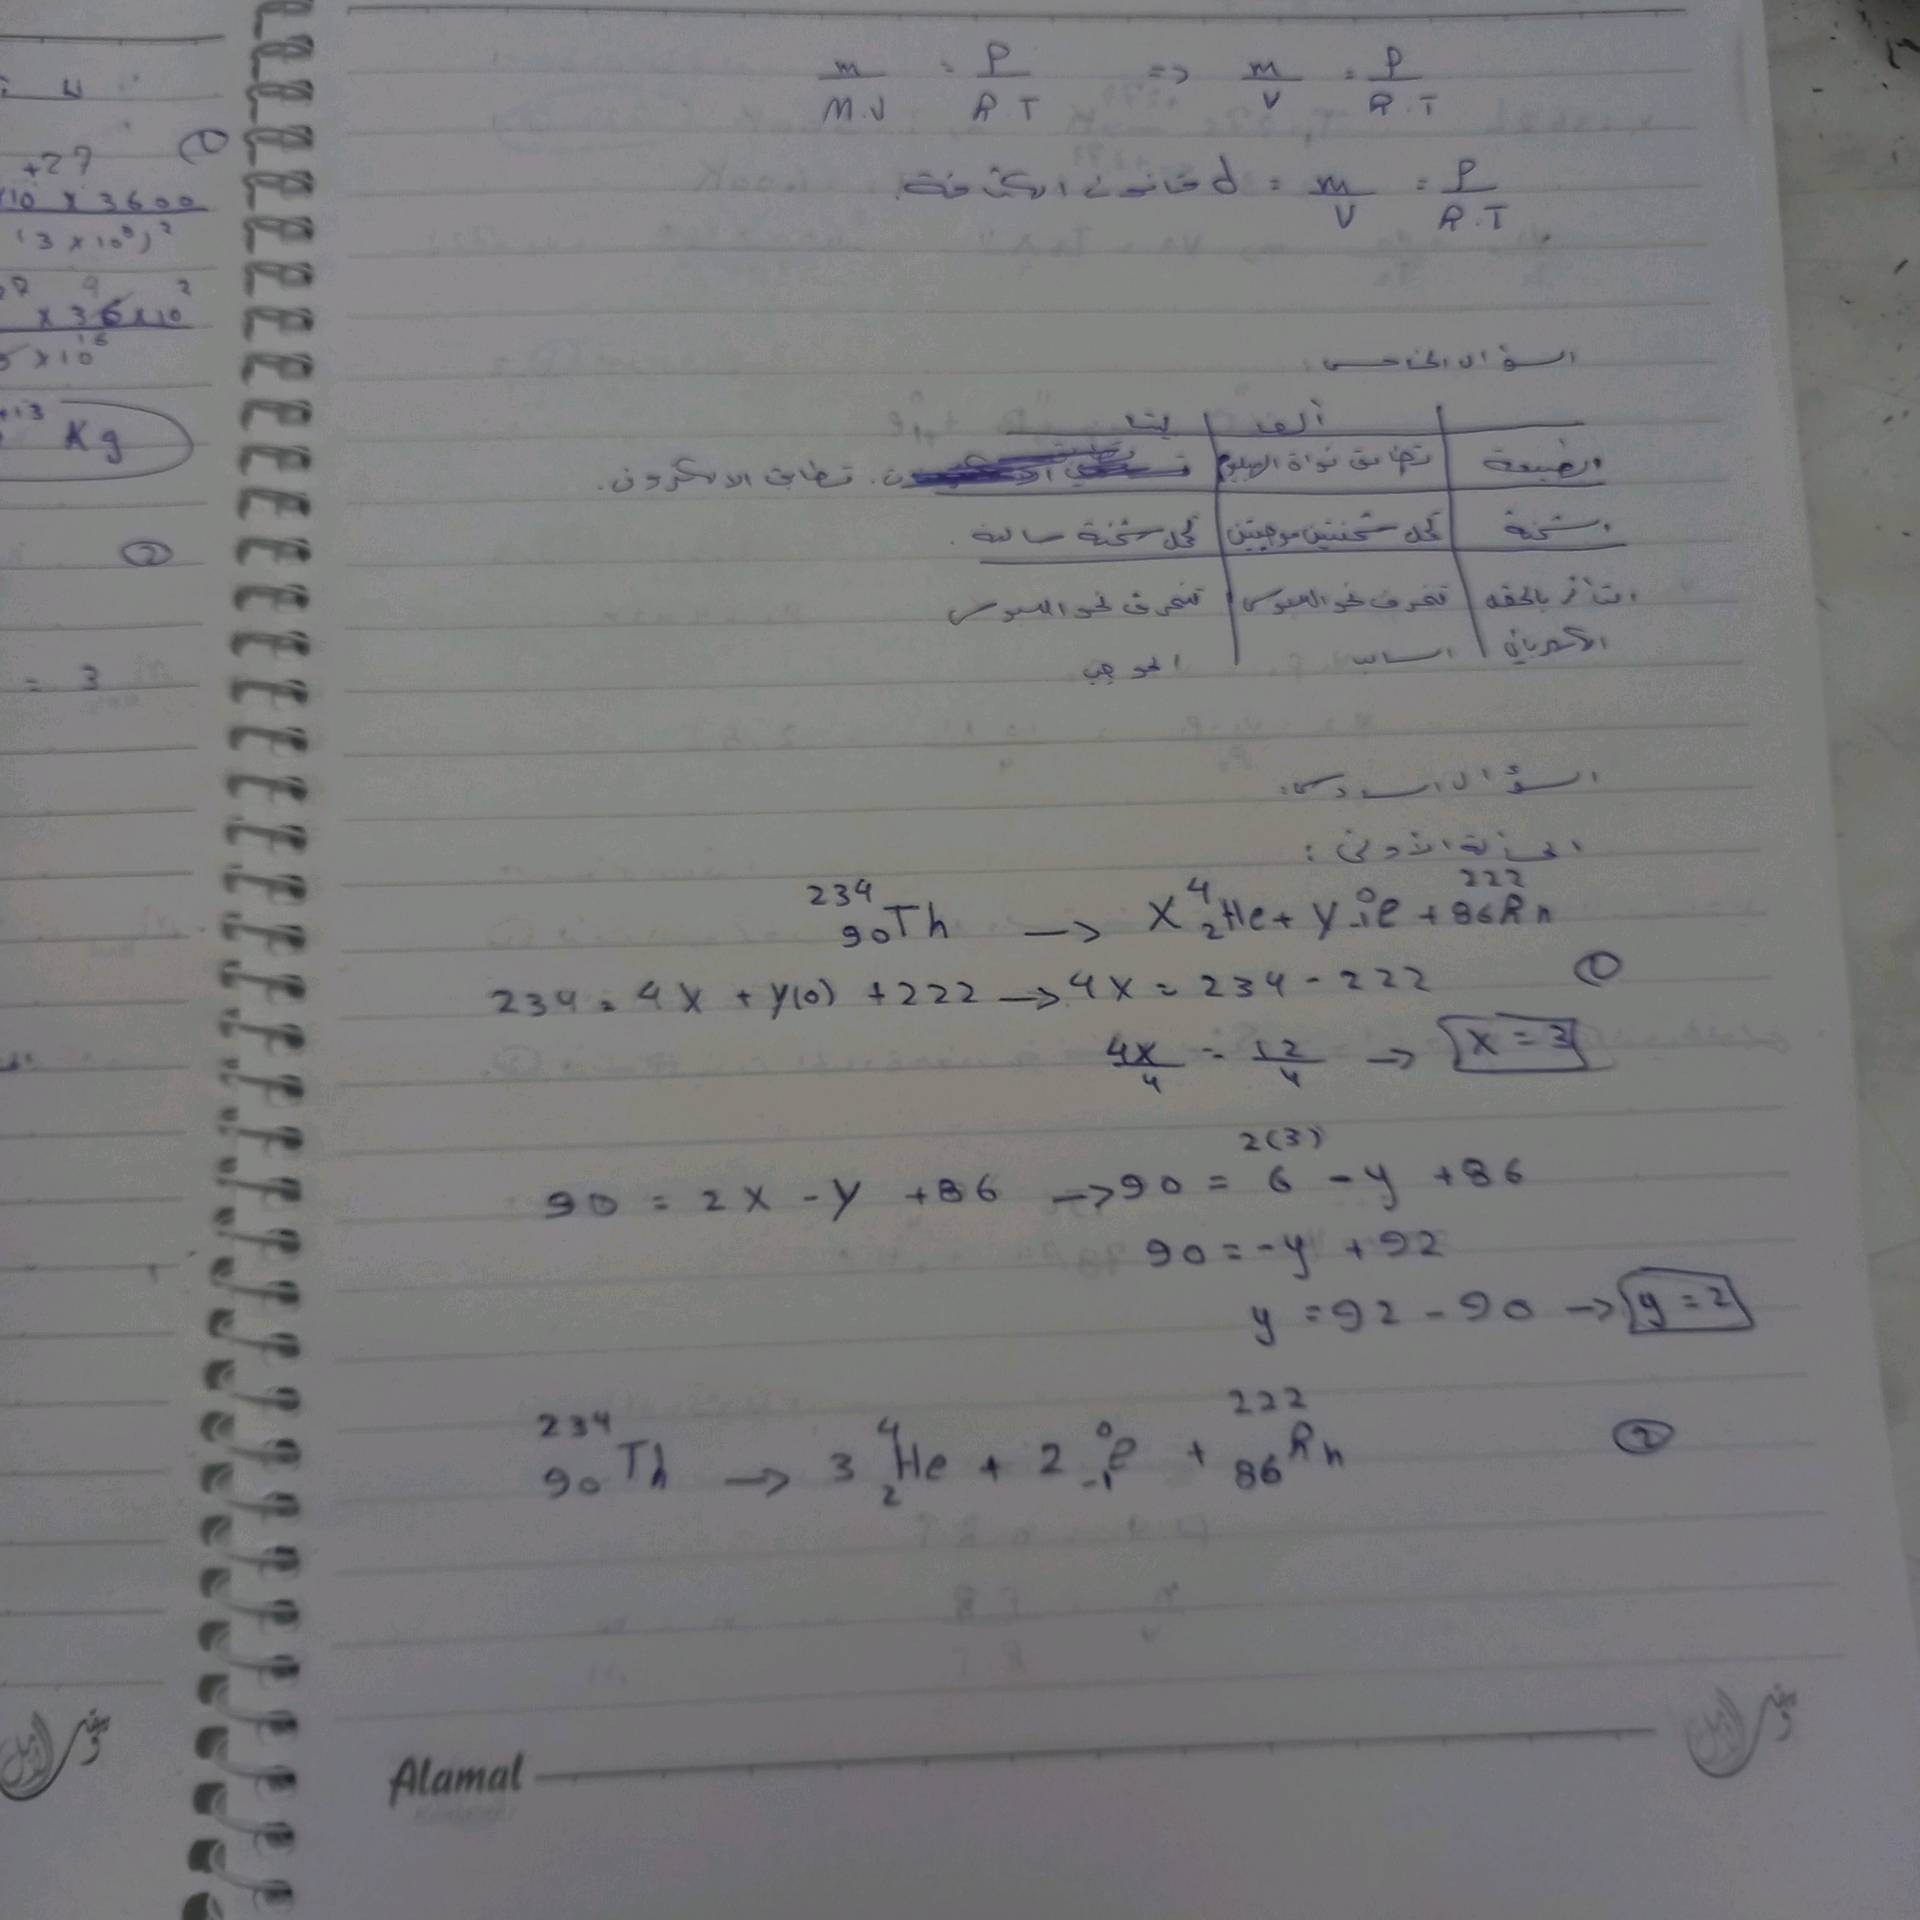 m/M.V = P/R.T => m/V = P/R.T
d قانون الكثافة = m/V = P/R.T
السؤال الخامس:
ألفا | بيتا
الطبيعة | تطابق نواة الهيليوم | تطابق الالكترون.
الشحنة | تحمل شحنتين موجبتين | تحمل شحنة سالبة.
التأثر بالحقل الكهربائي | تنحرف نحو اللبوس السالب | تنحرف نحو اللبوس الموجب
السؤال السادس:
المسألة الأولى:
²³⁴₉₀Th → X ⁴₂He + y ⁰₋₁e + ²²²₈₆Rn
234 = 4X + y(0) + 222 → 4X = 234 - 222 ①
4X/4 = 12/4 → X = 3
2(3)
90 = 2X - y + 86 → 90 = 6 - y + 86
90 = -y + 92
y = 92 - 90 → y = 2
²³⁴₉₀Th → 3 ⁴₂He + 2 ⁰₋₁e + ²²²₈₆Rn ②
Alamal
+27
10 x 3600
(3 x 10⁸)²
x 36 x 10²
x 10¹⁶
+13 Kg
②
= 3